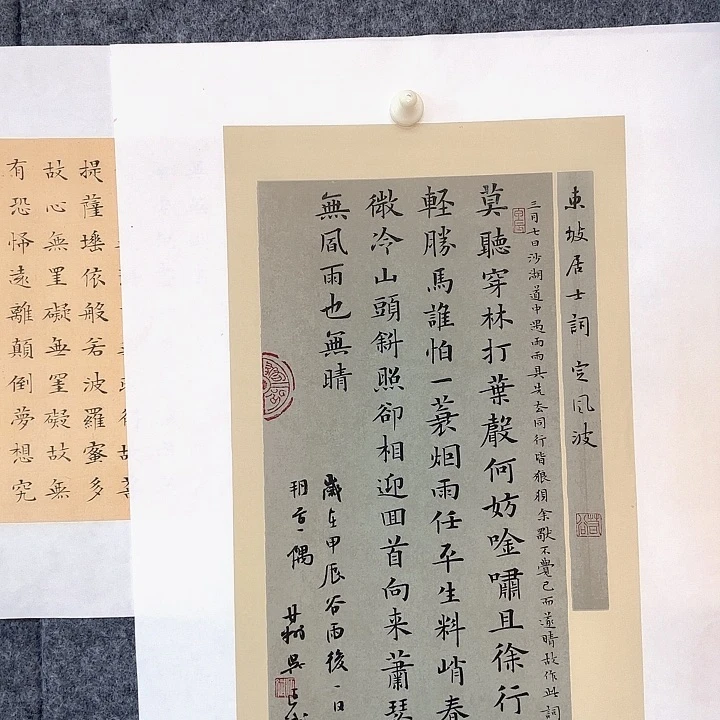 東坡居士詞 定風波
三月七日沙湖道中遇雨雨具先去同行皆狼狽余獨不覺已而遂晴故作此詞
莫聽穿林打葉聲何妨唫嘯且徐行
軽勝馬誰怕一蓑烟雨任平生料峭春
微冷山頭斜照卻相迎回首向来蕭瑟
無風雨也無晴
歲在甲辰谷雨後一日
提薩埵依般若波羅蜜多
故心無罣礙無罣礙故無
有恐怖遠離顛倒夢想究